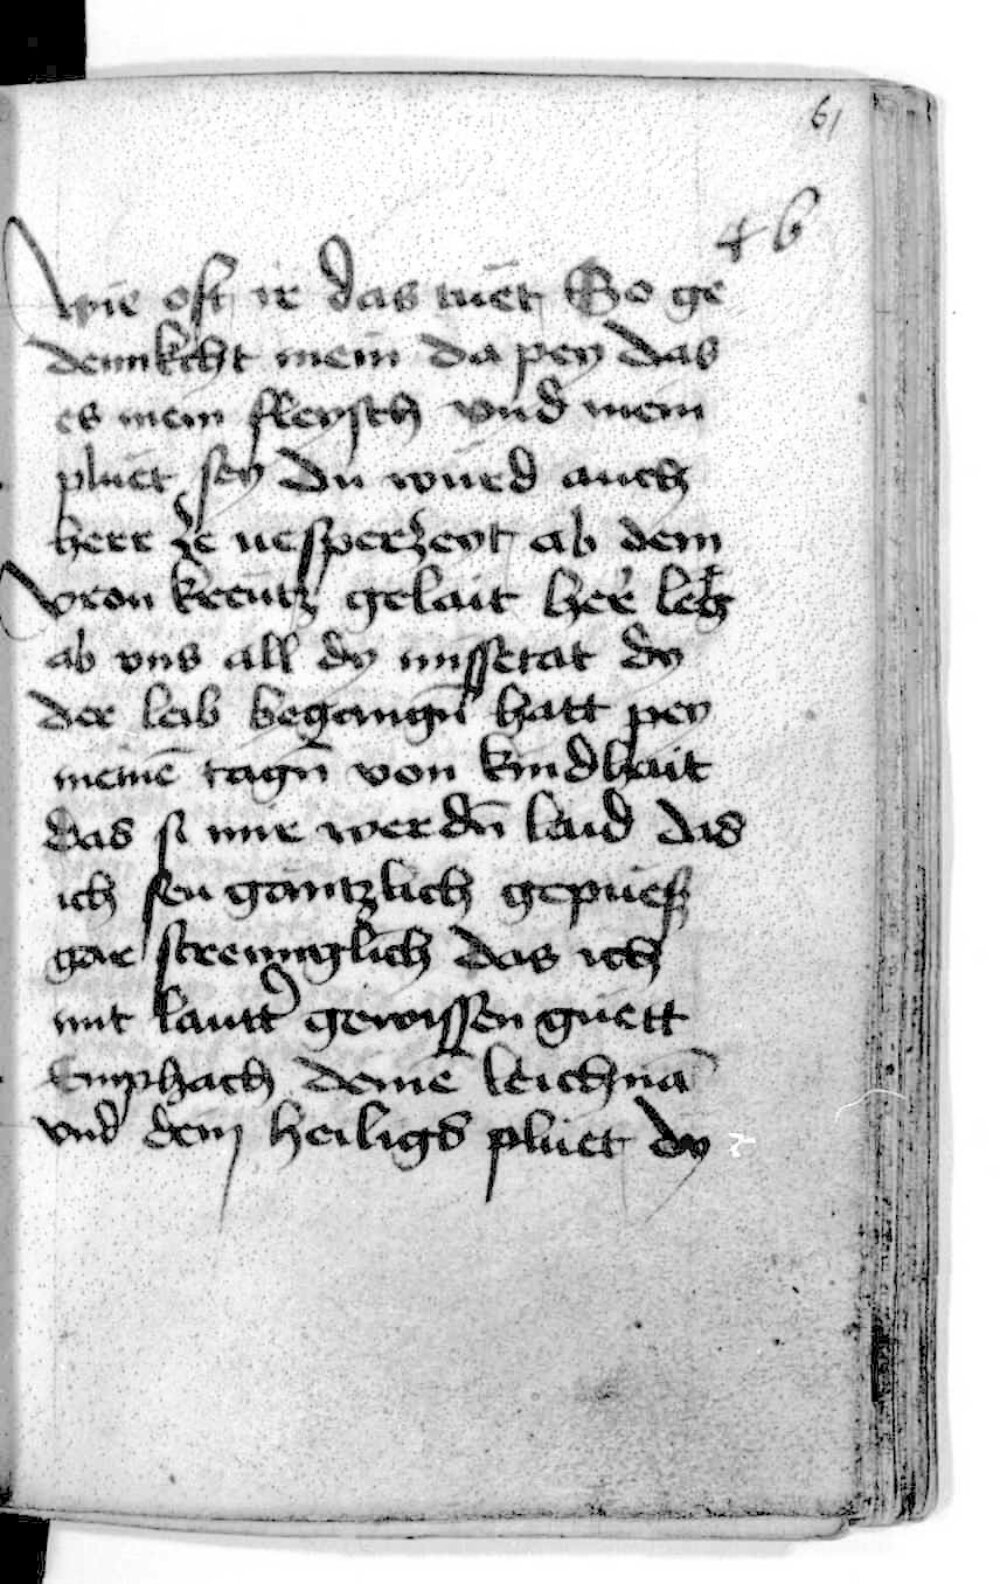 61
46
wie oft ir das tuet So ge
dennkcht mein da pey das
es mein fleysch vnd mein
pluet sey Du würd auch
herr ze uesperzeyt ab dem
vron kreutz gelait her leg
ab vns all dy missetat dy
der leib begangn̄ hatt pey
meinē tagn̄ von kindhait
das si mir werdn̄ laid das
ich seu gäntzlich gepües
gar strennglich das ich
mit lautt' gewissen guett
Emphach deinē leichnā
vnd dein heiligs pluet dy